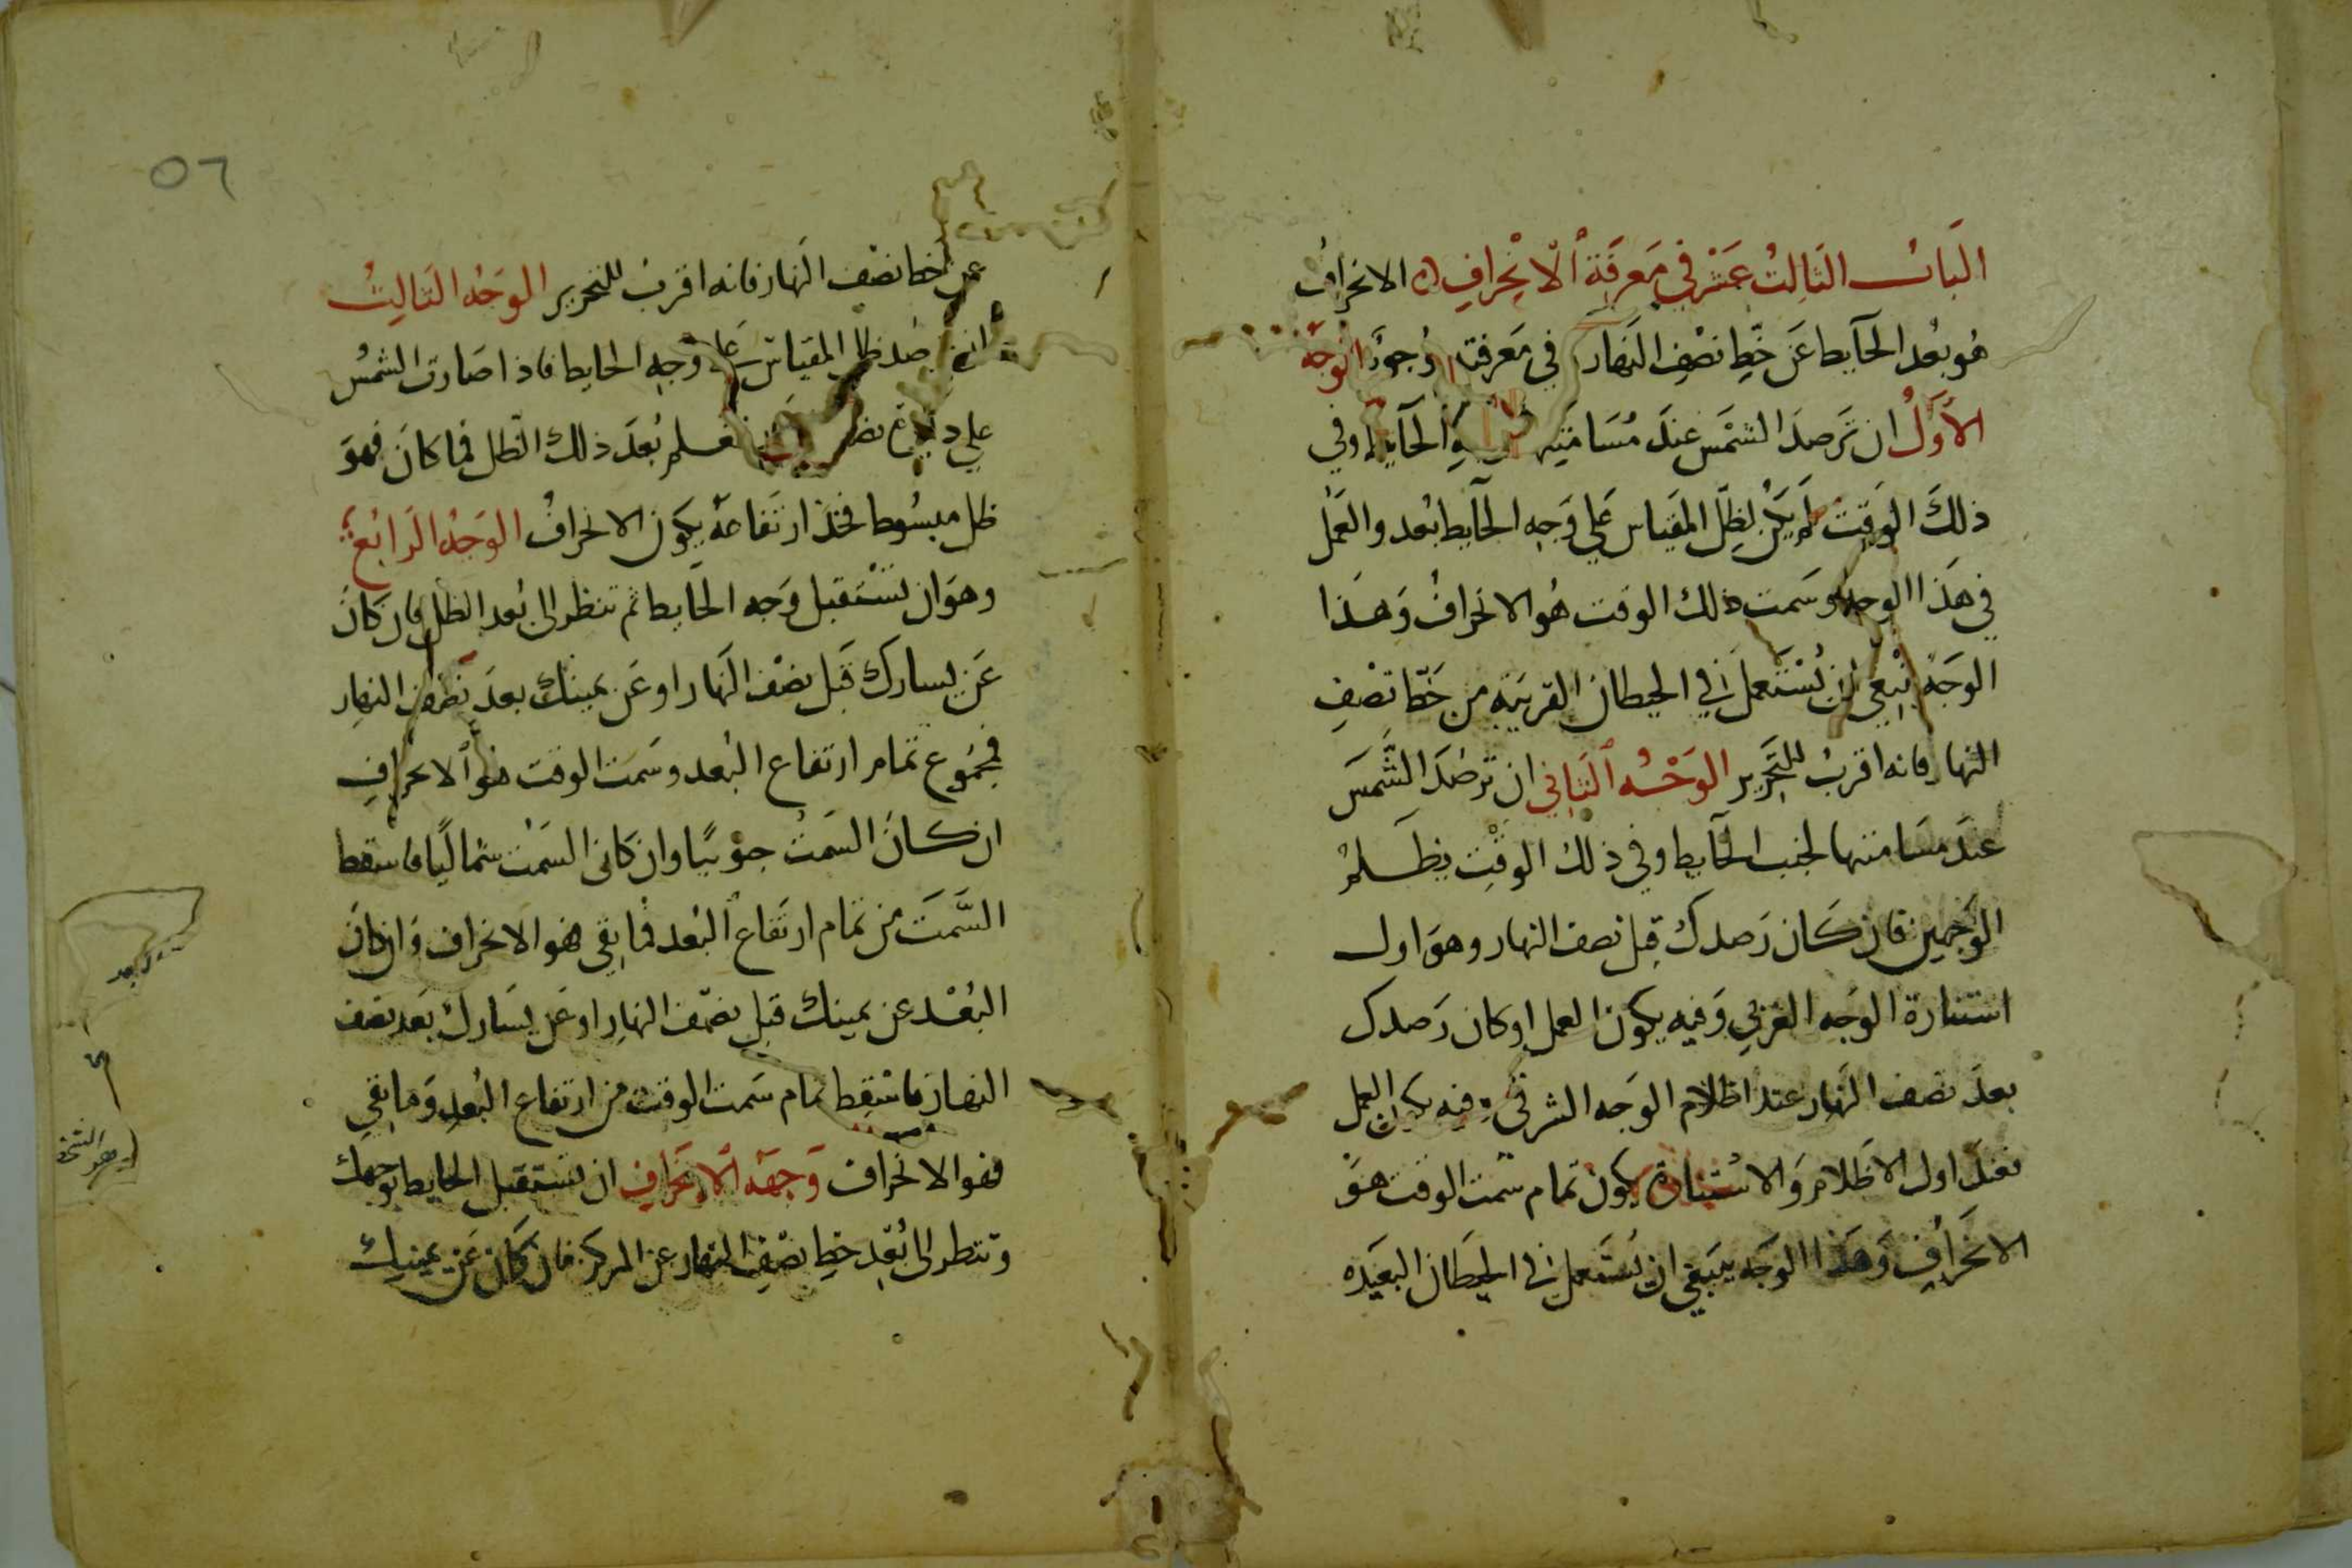 الباب الثالث عشر في معرفة الانحراف الانحراف
هو بعد الحايط عن خط نصف النهار في معرفته وجوه الوجه
الأول ان ترصد الشمس عند مسامتته الحايط وفي
ذلك الوقت لم يكن لظل المقياس على وجه الحايط بعد والعمل
في هذا الوجه وسمت ذلك الوقت هو الانحراف وهذا
الوجه ينبغي ان يستعمل في الحيطان القريبه من خط نصف
النهار فانه اقرب للتحرير الوجه الثاني ان ترصد الشمس
عند مسامتتها لجنب الحايط وفي ذلك الوقت يظلم
الوجهين فان كان رصدك قبل نصف النهار وهو اول
استنارة الوجه الغربي وفيه يكون العمل او كان رصدك
بعد نصف النهار عند اظلام الوجه الشرقي وفيه يكون العمل
فعند اول الاظلام والاستنارة يكون تمام سمت الوقت هو
الانحراف وهذا الوجه ينبغي ان يستعمل في الحيطان البعيده
٥٦
عن خط نصف النهار فانه اقرب للتحرير الوجه الثالث
ان ترصد ظل المقياس على وجه الحايط فاذا صارت الشمس
على دايرة نصف فعلم بعد ذلك الظل فما كان فهو
ظل مبسوط فخذ ارتفاعه يكون الانحراف الوجه الرابع
وهو ان تستقبل وجه الحايط ثم تنظر الى بعد الظل فان كان
عن يسارك قبل نصف النهار او عن يمينك بعد نصف النهار
فمجموع تمام ارتفاع البعد وسمت الوقت هو الانحراف
ان كان السمت جنوبيا وان كان السمت شماليا فاسقط
السمت من تمام ارتفاع البعد فما بقي فهو الانحراف وان كان
البعد عن يمينك قبل نصف النهار او عن يسارك بعد نصف
النهار فاسقط تمام سمت الوقت من ارتفاع البعد وما بقي
فهو الانحراف وجهة الانحراف ان تستقبل الحايط بوجهك
وتنظر الى بعد خط نصف النهار عن المركز فان كان عن يمينك